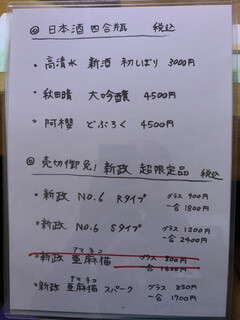 ◎ 日本酒 四合瓶 税込
・高清水 新酒 初しぼり 3000円
・秋田晴 大吟醸 4500円
・阿櫻 どぶろく 4500円
◎ 売切御免! 新政 超限定品 税込
・新政 NO.6 Rタイプ グラス 900円
一合 1800円
・新政 NO.6 Sタイプ グラス 1200
一合 2400円
アマネコ
・新政 亜麻猫 グラス 800円
一合 1600円
アマネコ
・新政 亜麻猫 スパーク グラス 850円
一合 1700円